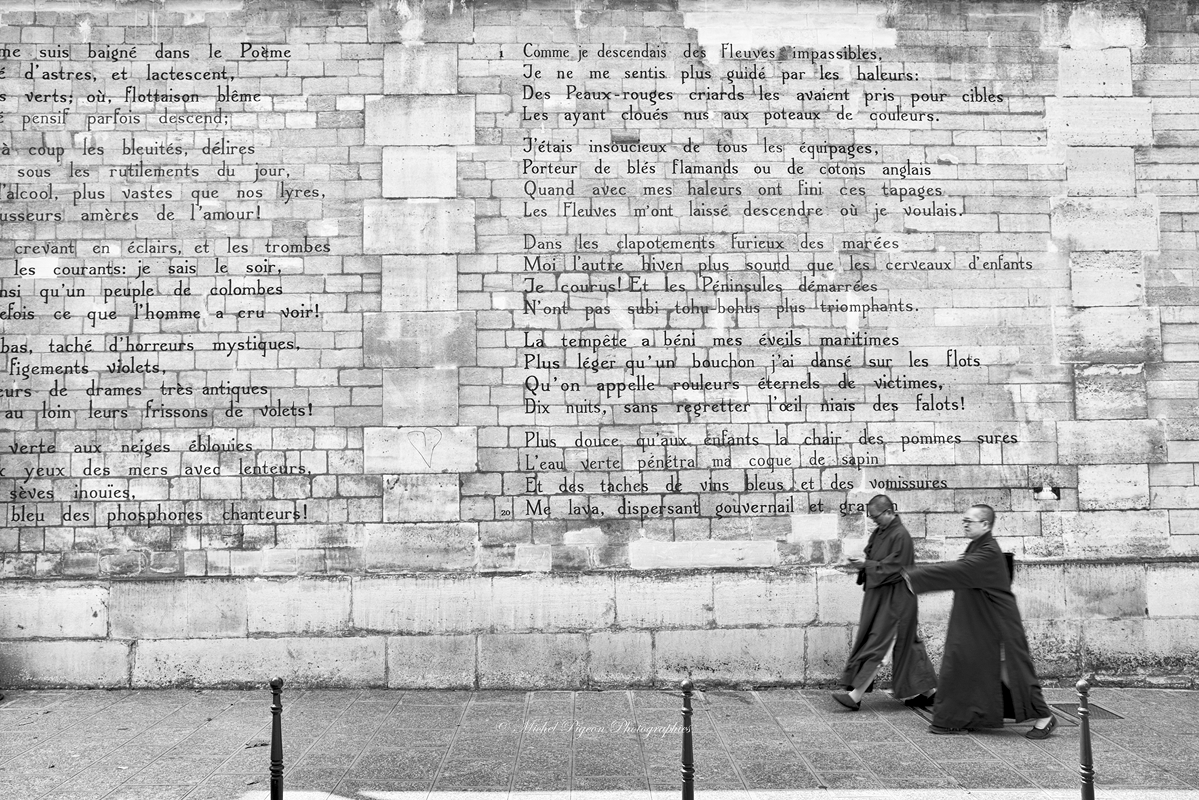 me suis baigné dans le Poème
d'astres, et lactescent,
verts; où, flottaison blême
pensif parfois descend;
à coup les bleuités, délires
sous les rutilements du jour,
l'alcool, plus vastes que nos lyres,
usseurs amères de l'amour!
crevant en éclairs, et les trombes
les courants: je sais le soir,
nsi qu'un peuple de colombes
efois ce que l'homme a cru voir!
bas, taché d'horreurs mystiques,
figements violets,
eurs de drames très antiques
au loin leurs frissons de volets!
verte aux neiges éblouies
yeux des mers avec lenteurs,
sèves inouïes,
bleu des phosphores chanteurs!
1 Comme je descendais des Fleuves impassibles,
Je ne me sentis plus guidé par les haleurs:
Des Peaux-rouges criards les avaient pris pour cibles
Les ayant cloués nus aux poteaux de couleurs.
J'étais insoucieux de tous les équipages,
Porteur de blés flamands ou de cotons anglais
Quand avec mes haleurs ont fini ces tapages
Les Fleuves m'ont laissé descendre où je voulais.
Dans les clapotements furieux des marées
Moi l'autre hiver plus sourd que les cerveaux d'enfants
Je courus! Et les Péninsules démarrées
N'ont pas subi tohu-bohus plus triomphants.
La tempête a béni mes éveils maritimes
Plus léger qu'un bouchon j'ai dansé sur les flots
Qu'on appelle rouleurs éternels de victimes,
Dix nuits, sans regretter l'œil niais des falots!
Plus douce qu'aux enfants la chair des pommes sures
L'eau verte pénétra ma coque de sapin
Et des taches de vins bleus et des vomissures
20 Me lava, dispersant gouvernail et gra
© Michel Pigeon Photographies